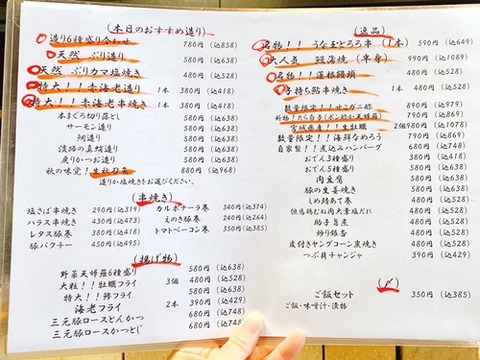 (本日のおすすめ造り)
造り6種盛り合わせ 780円(込858)
天然 ぶり造り 580円(込638)
天然 ブリカマ塩焼き 480円(込528)
特大!!赤海老造り 1本 380円(込418)
特大!!赤海老串焼き 1本 380円(込418)
本まぐろ切り落とし 580円(込638)
サーモン造り 580円(込638)
鯛造り 580円(込638)
淡路の真鯛造り 580円(込638)
戻りかつお造り 580円(込638)
秋の味覚!生秋刀魚 880円(込968)
造りか塩焼きをお選びください。
(串焼き)
塩さば串焼き 290円(込319)
ハラス串焼き 430円(込473)
レタス豚巻 380円(込418)
豚パクチー 450円(込495)
カルボナーラ巻 340円(込374)
えのき豚巻 240円(込264)
トマトベーコン巻 350円(込385)
(揚げ物)
野菜天婦羅6種盛り 580円(込638)
大粒!!牡蠣フライ 3個 480円(込528)
特大!!鯵フライ 580円(込638)
海老フライ 2本 390円(込429)
三元豚ロースとんかつ 680円(込748)
三元豚ロースかつとじ 680円(込748)
(逸品)
名物!!うな玉とろろ串(1本) 590円(込649)
大人気 鰻蒲焼(半身) 990円(込1089)
名物!!蓮根饅頭 480円(込528)
子持ち鮎串焼き 480円(込528)
数量限定!!せこガニ酢 890円(込979)
たら白子(ポン酢か天婦羅) 790円(込869)
宮城県産!!生牡蠣 2個980円(込1078)
数量限定!!海鮮なめろう 790円(込869)
自家製!!煮込みハンバーグ 680円(込748)
おでん3種盛り 380円(込418)
おでん5種盛り 580円(込638)
肉豆腐 580円(込638)
豚の生姜焼き 580円(込638)
しめ鯖あて巻 480円(込528)
但馬鶏むね肉大葉塩だれ 480円(込528)
助子旨煮 480円(込528)
炒り銀杏 480円(込528)
皮付きヤングコーン炭焼き 480円(込528)
つぶ貝チャンジャ 390円(込429)
(〆)
ご飯セット 350円(込385)
ご飯・味噌汁・漬物